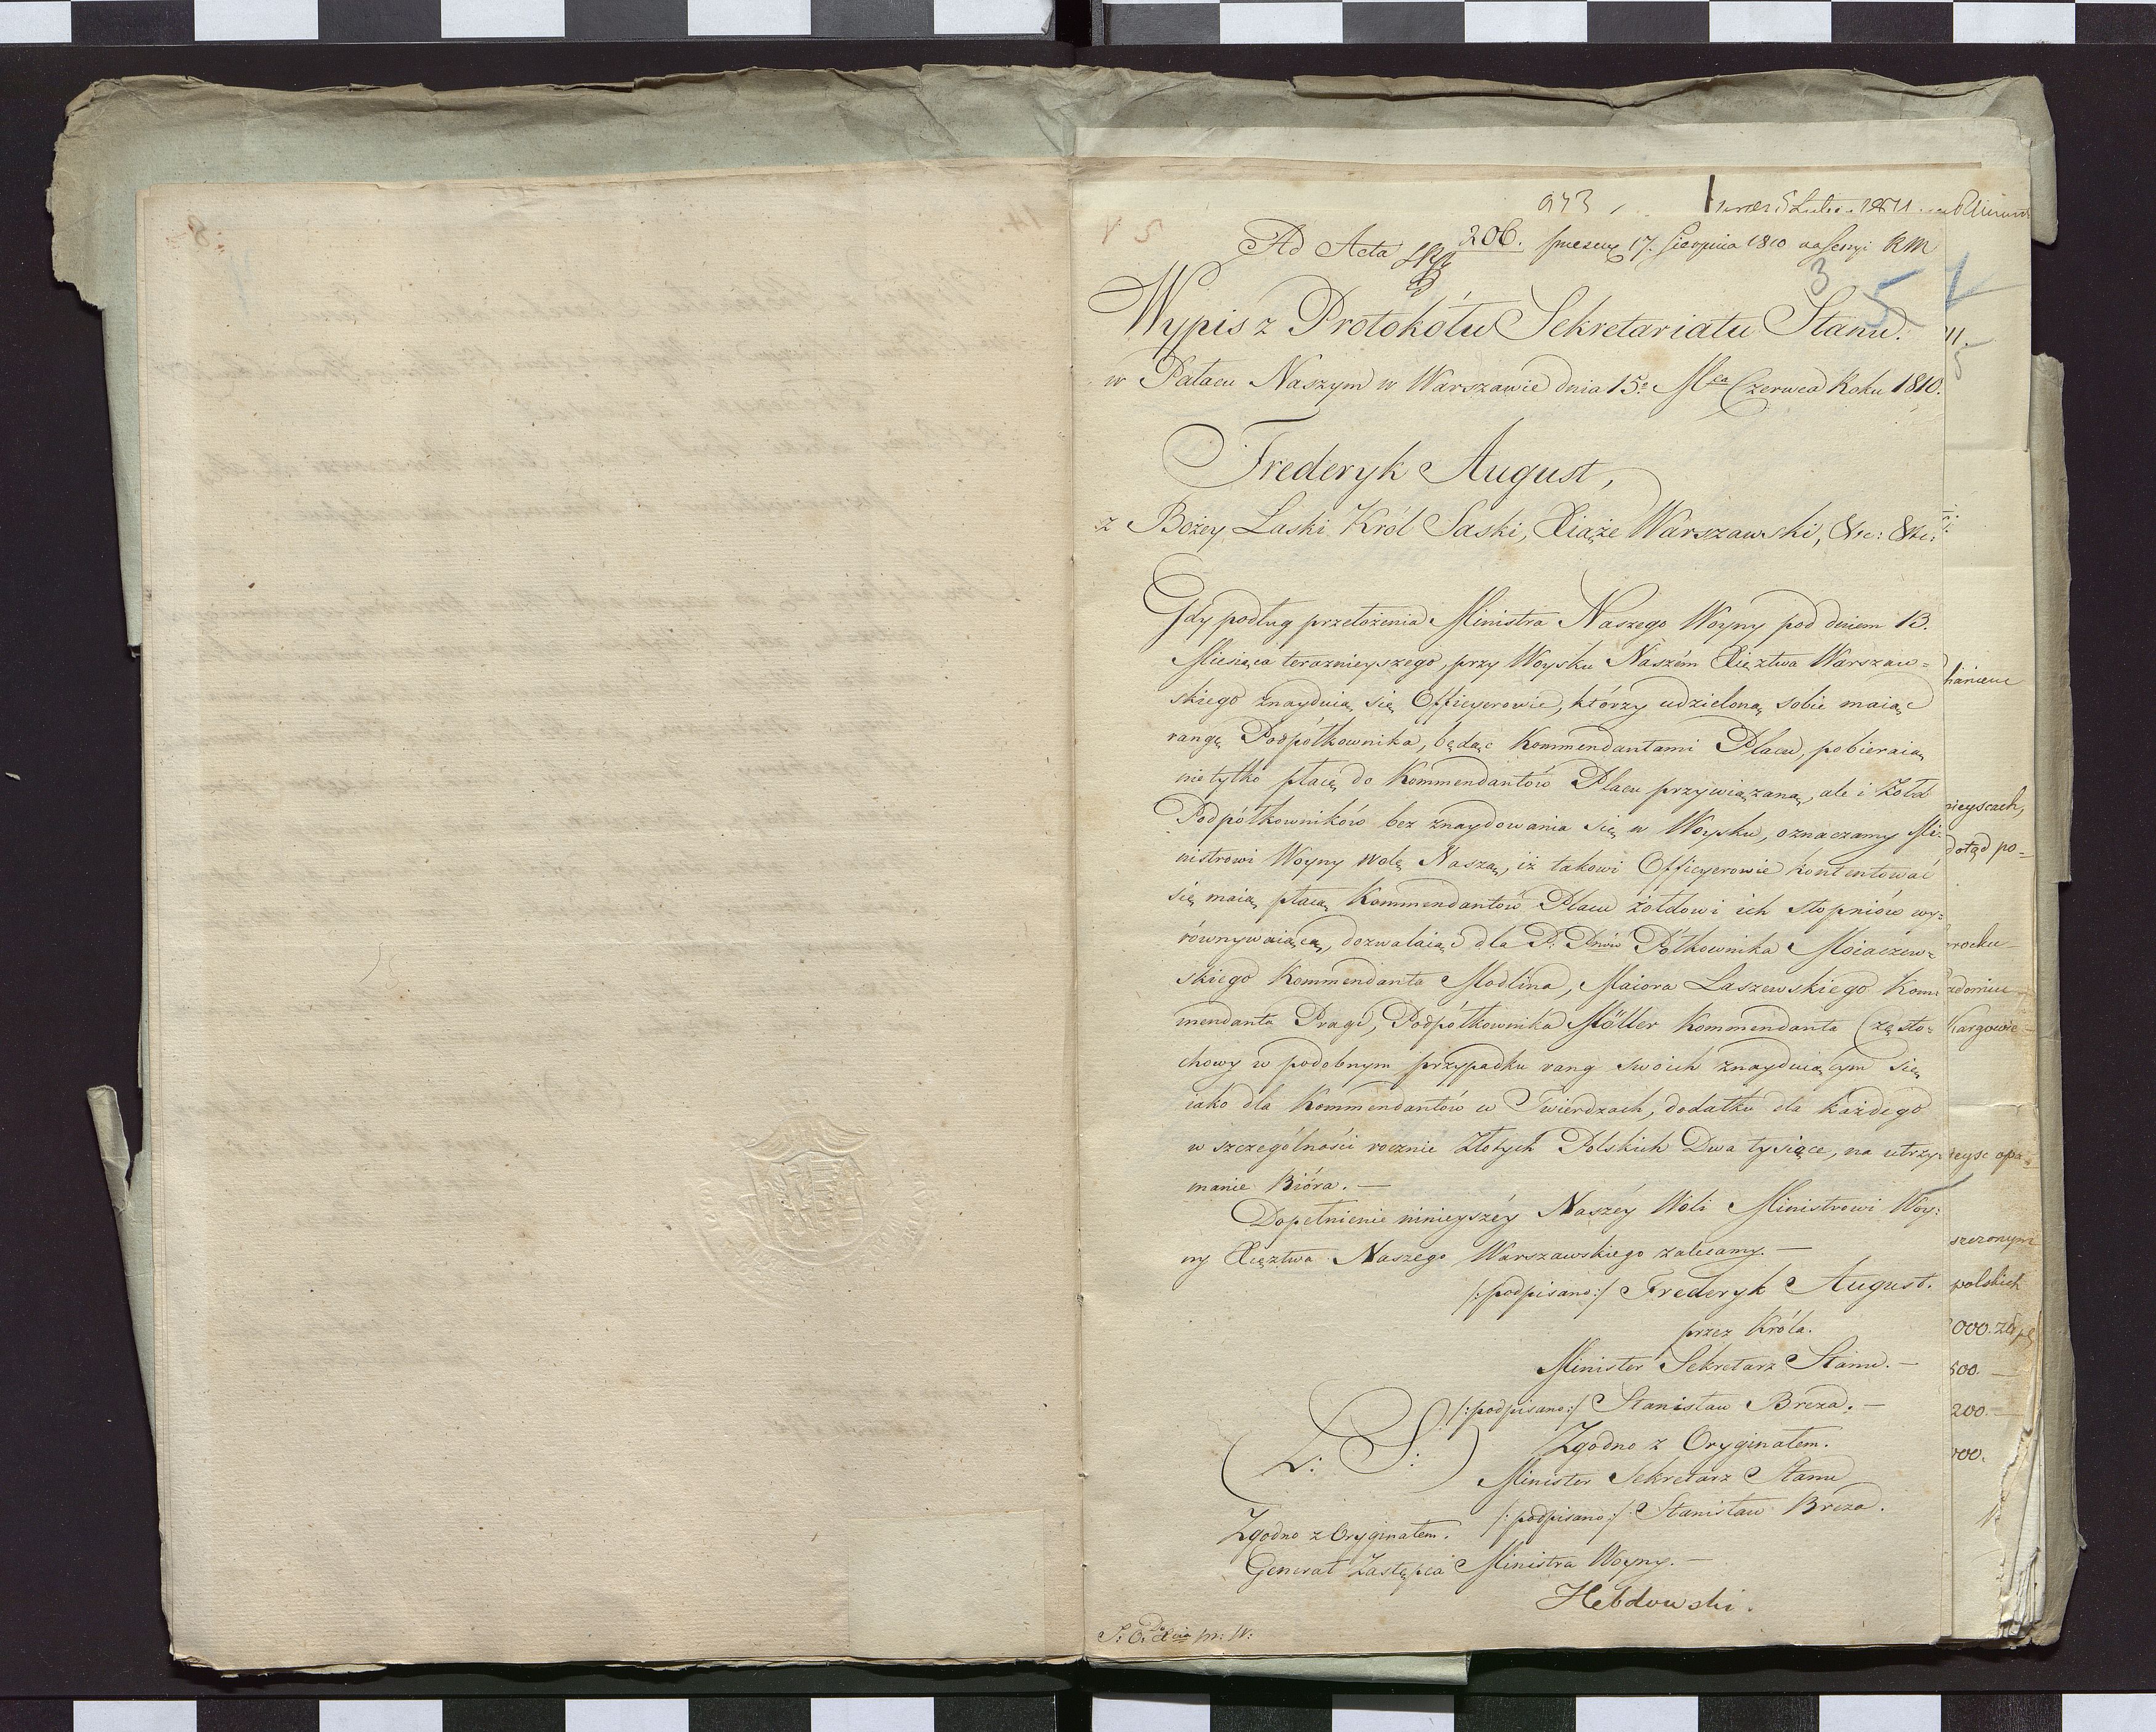 943
Ad Acta 206. 17. Sierpnia 1810 na Sessyi RM
3 5
Wypis z Protokółu Sekretariatu Stanu.
w Pałacu Naszym w Warszawie dnia 15º Mca Czerwca Roku 1810.
Frederyk August,
z Bożey Łaski Król Saski, Xiąże Warszawski, &c: &c:
Gdy podług przełożenia Ministra Naszego Woyny pod dniem 13.
Miesiąca teraznieyszego, przy Woysku Naszém Xięztwa Warszaw=
skiego znayduią się Officyerowie, którzy udzieloną sobie maiąc
rangę Podpółkownika, będąc Kommendantami Placu, pobieraią
nietylko płacę do Kommendantów Placu przywiązaną, ale i Żołd
Podpółkowników bez znaydowania się w Woysku, oznaczamy Mi=
nistrowi Woyny wolę Naszą, iż takowi Officyerowie kontentować
się maią płacą Kommendantów Placu żołdowi ich stopniów wy=
równywaiącą, dozwalaiąc dla P. Pnów Półkownika Moiaczew=
skiego Kommendanta Modlina, Maiora Laszewskiego Kom=
mendanta Pragi, Podpółkownika Möller Kommendanta Często=
chowy w podobnym przypadku rang swoich znayduiącym się,
iako dla Kommendantów w Twierdzach, dodatku dla każdego
w szczególności rocznie Złotych Polskich Dwa tysiące, na utrzy=
manie Bióra. —
Dopełnienie ninieyszéy Naszéy Woli Ministrowi Woy=
ny Xięztwa Naszego Warszawskiego zalecamy. —
/:podpisano:/ Frederyk August.
przez Króla.
Minister Sekretarz Stanu. —
/:podpisano:/ Stanisław Breza. —
(L: S:) Zgodno z Oryginałem.
Minister Sekretarz Stanu
/:podpisano:/ Stanisław Breza.
Zgodno z Oryginałem.
Generał Zastępca Ministra Woyny. —
Hebdowski.
mieyscach,
dotąd po=
polskich
000. złp
500. —
200. —